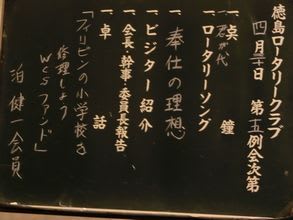 徳島ロータリークラブ
四月二十日 第五例会次第
一 点鐘
君が代
一 ロータリーソング
奉仕の理想
一 ビジター紹介
一 会長・幹事・委員長報告
一 卓話
「フィリピンの小学校を
修理しよう
WCSファンド」
泊 健一会員